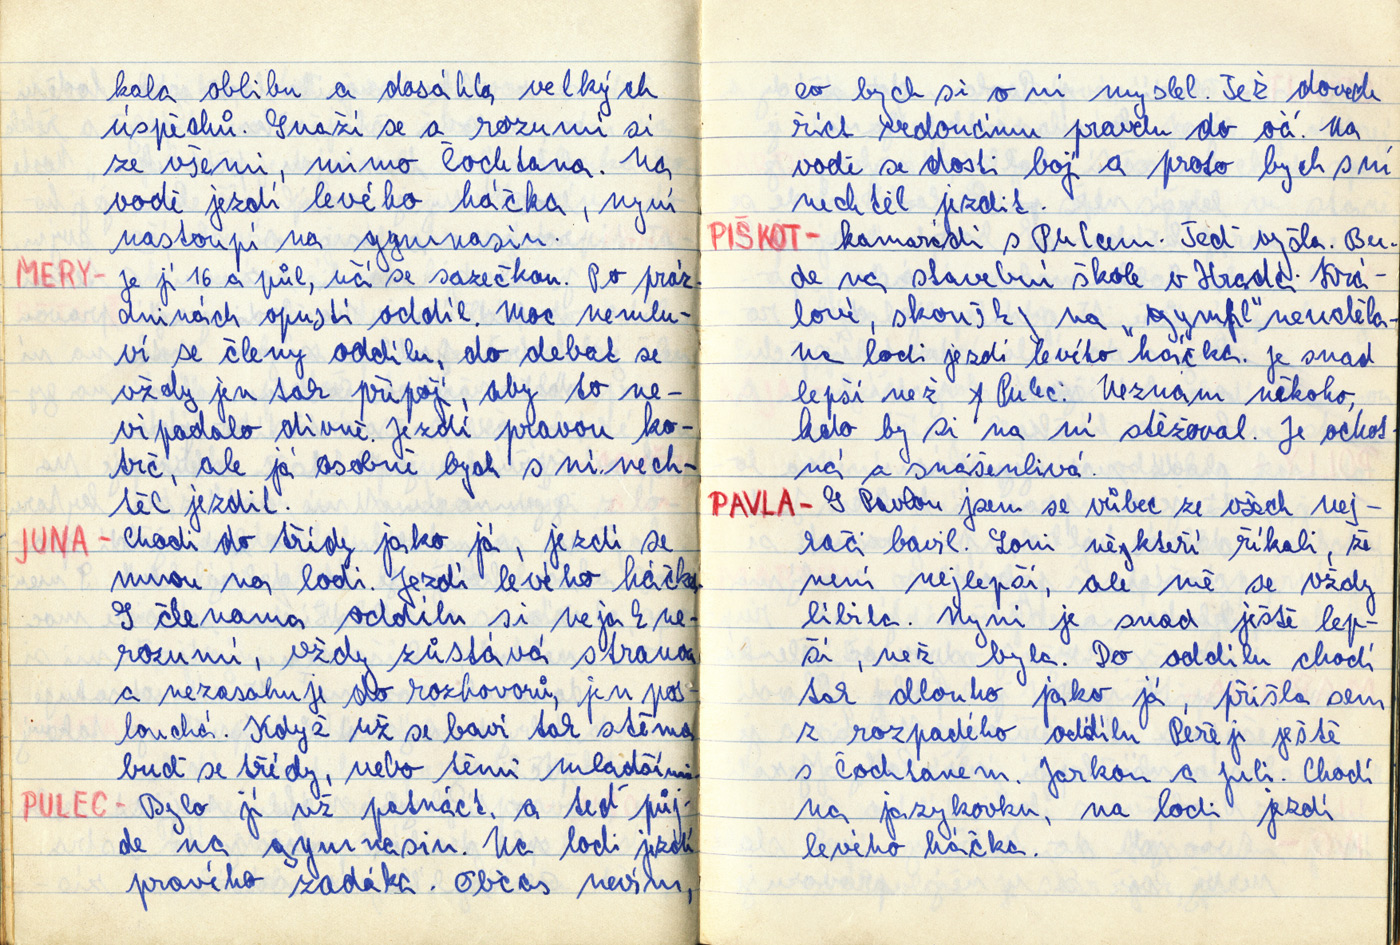 kala oblibu a dosáhla velkých
úspěchů. Snaží se a rozumí si
ze všemi, mimo Čochtana. Na
vodě jezdí levého háčka, nyní
nastoupí na gymnasiu.
MERY- je jí 16 a půl, učí se sazečkou. Po práz-
dninách opustí oddíl. Moc nemlu-
ví se členy oddílu, do debat se
vždy jen tak připojí aby to ne-
vipadalo divně. Jezdí pravou ko-
trč, ale já osobně bych s ní nech-
těl jezdit.
JUNA - Chodí do třídy jako já, jezdí se
mnou na lodi. Jezdí levého háčka
S členama oddílu si nejak ne-
rozumí, vždy zůstává stranou
a nezasahuje do rozhovorů, jen pos-
louchá. Když už se baví tak stěma
buď se třídy, nebo těmi mladšími
PULEC - Bylo jí už patnáct, a teď půj-
de na gymnasiu. Na lodi jezdí
pravého zadáka. Občas nevím,
co bych si o ní myslel. Též dovede
říct vedoucímu pravdu do očí. Na
vodě se dosti bojí a proto bych s ní
nechtěl jezdit.
PIŠKOT - kamarádí s Pulcem. Teď vyšla. Bu-
de na stavební škole v Hradci Krá-
lové, skoušky na „gympl" neuděla-
na lodi jezdí levého háčka. je snad
lepší než Pulec. Neznám někoho,
kdo by si na ní stěžoval. Je ochot-
ná a snášenlivá.
PAVLA - S Pavlou jsem se vůbec ze všech nej-
rači bavil. Loni někteří říkali, že
není nejlepší, ale mě se vždy
líbila. Nyní je snad ještě lep-
ší, než byla. Do oddílu chodí
tak dlouho jako já, přišla sem
z rozpadého oddílu Peřeji ještě
s Čochtanem. Jarkou a Juli. Chodí
na jazykovku, na lodi jezdí
levého háčka.